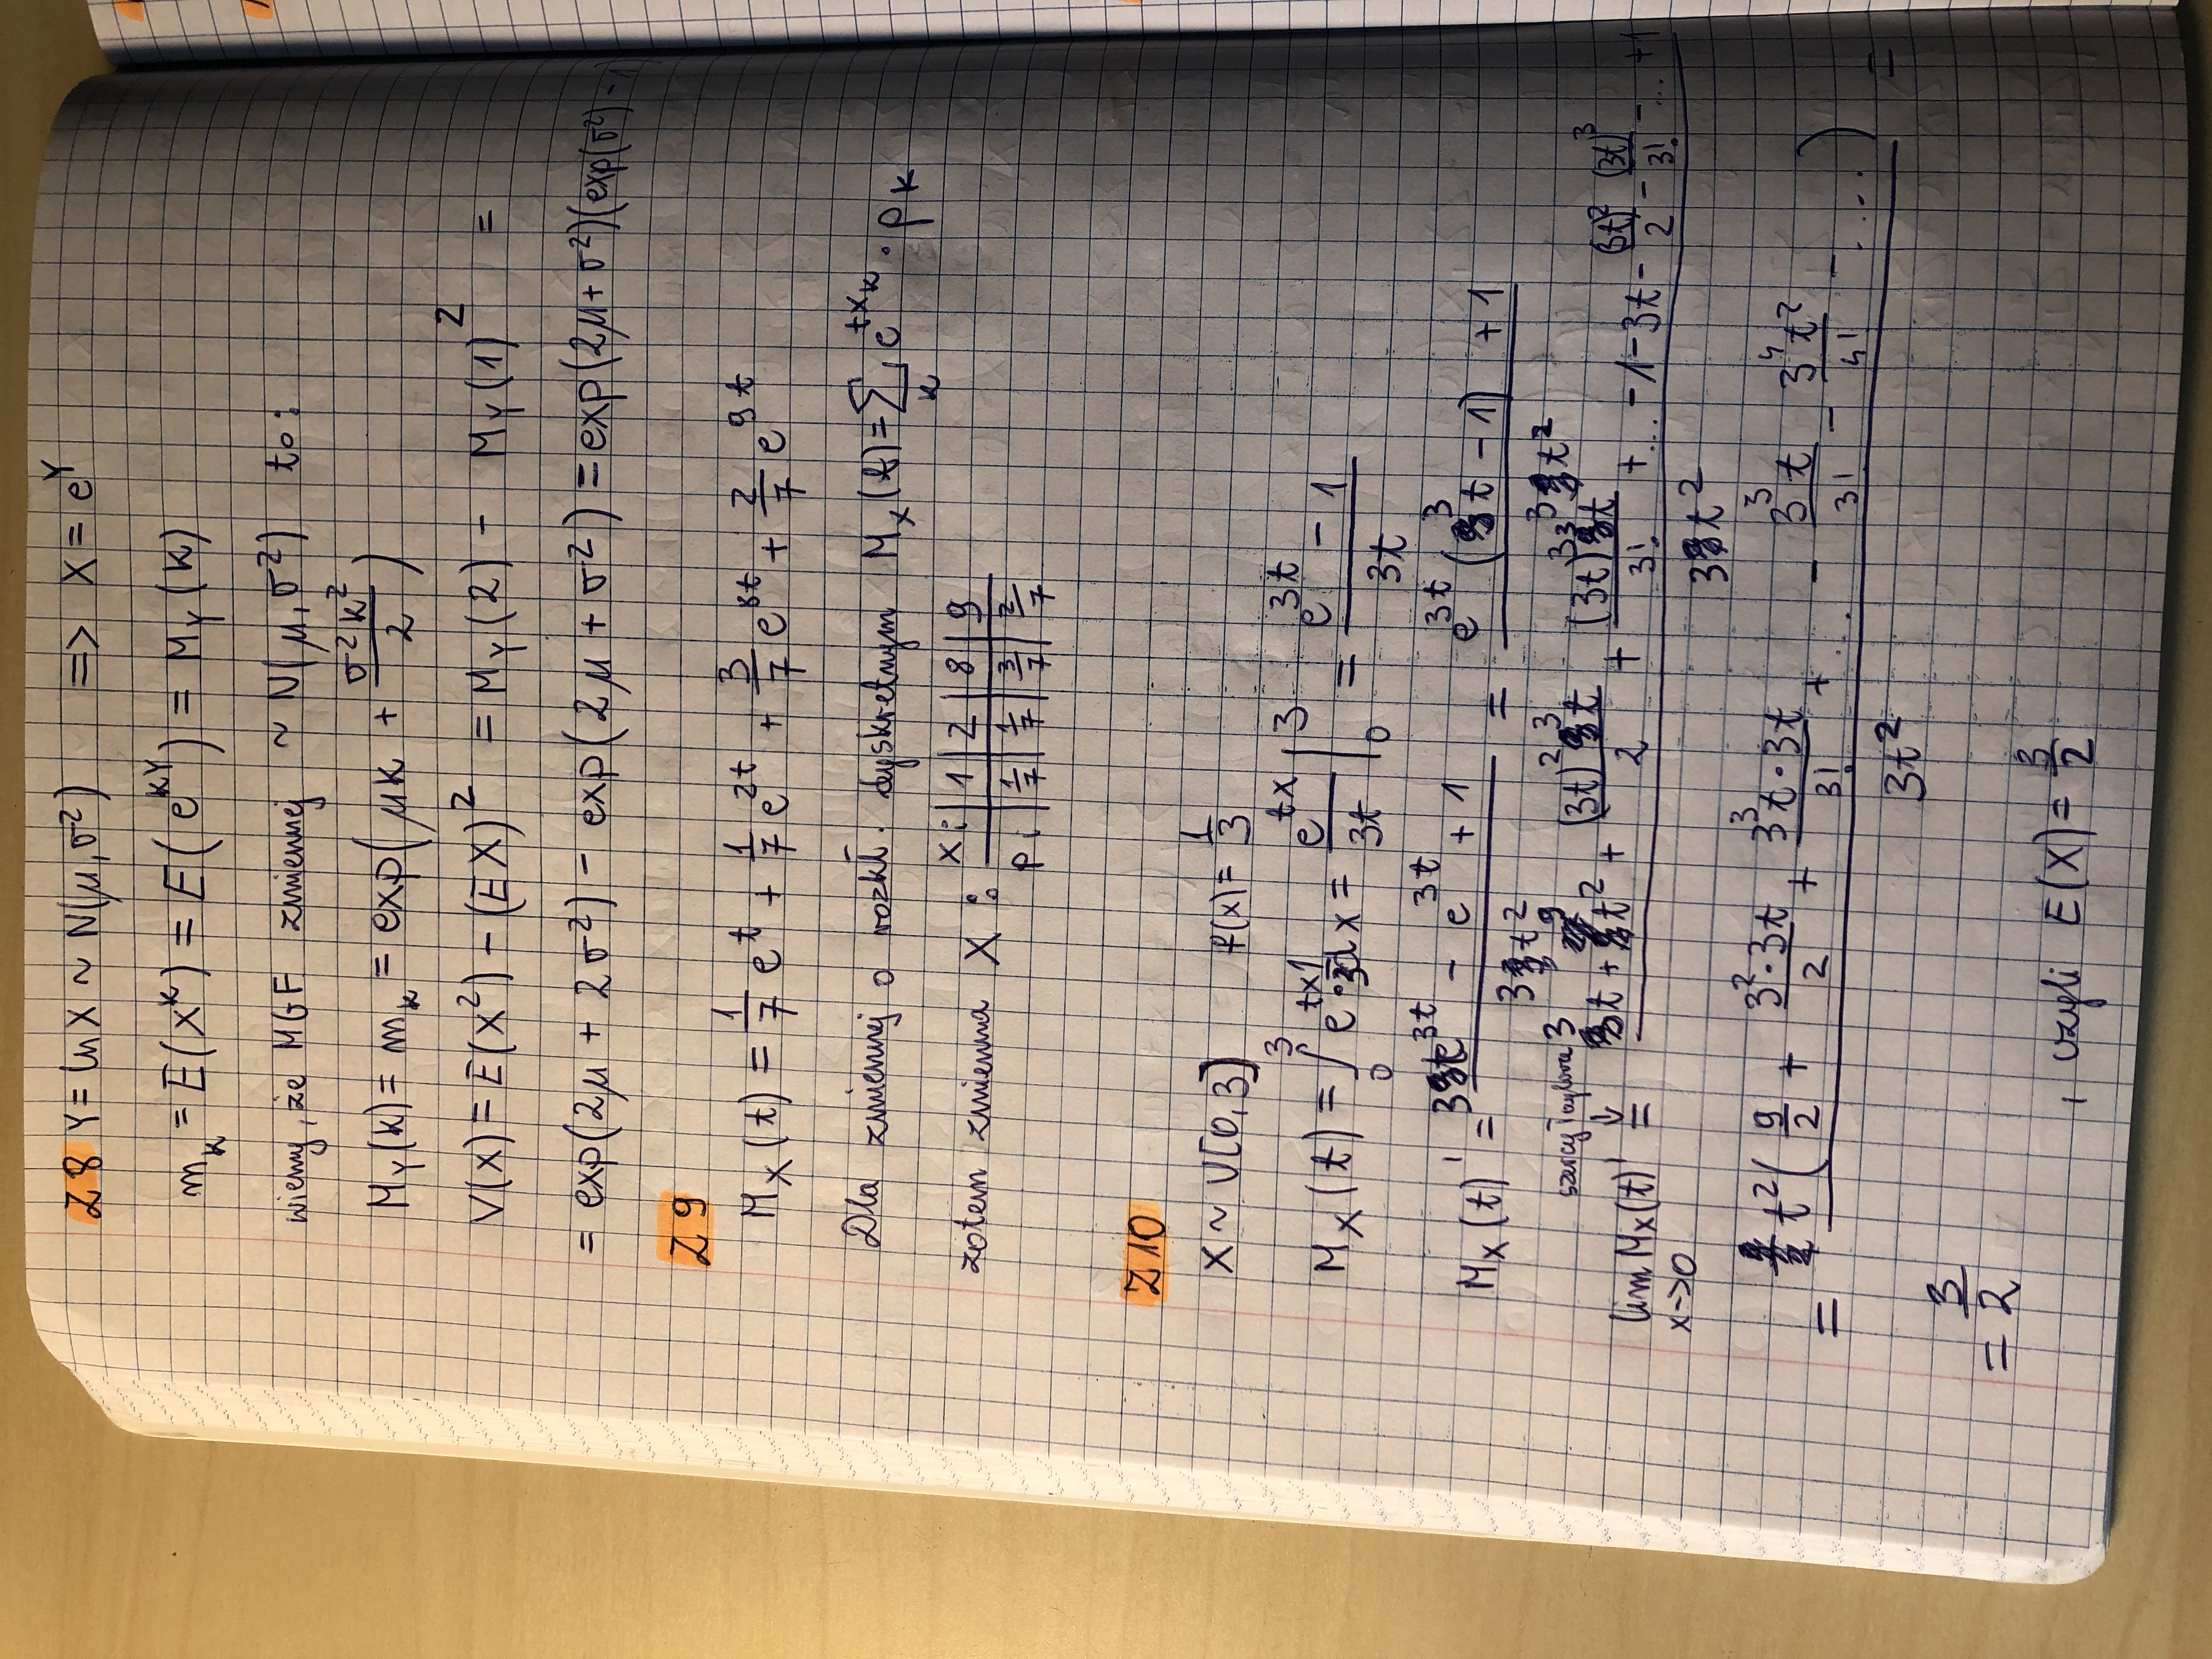 Z8 Y = ln X ~ N(μ, σ²) => X = e^Y
m_k = E(X^k) = E(e^{kY}) = M_Y(k)
wiemy, że MGF zmiennej ~ N(μ, σ²) to:
M_Y(k) = m_k = exp(μk + σ²k²/2)
V(X) = E(X²) - (EX)² = M_Y(2) - M_Y(1)² =
= exp(2μ + 2σ²) - exp(2μ + σ²) = exp(2μ + σ²)(exp(σ²) - 1)
Z9
M_X(t) = 1/7 e^t + 1/7 e^{2t} + 3/7 e^{8t} + 2/7 e^{9t}
Dla zmiennej o rozkł. dyskretnym M_X(t) = Σ_k e^{tx_k} · p_k
zatem zmienna X : x_i | 1 | 2 | 8 | 9
p_i | 1/7 | 1/7 | 3/7 | 2/7
Z10
X ~ U[0,3] f(x) = 1/3
M_X(t) = ∫_0^3 e^{tx} · 1/3 dx = e^{tx}/3t |_0^3 = (e^{3t} - 1)/3t
M_X(t)' = (3te^{3t} - e^{3t} + 1)/3t² = (e^{3t}(3t - 1) + 1)/3t²
szereg Taylora
↓
lim_{x→0} M_X(t)' = (3t + 9t² + (3t)²3t/2 + (3t)³3t/3! + ... - 1 - 3t - (3t)²/2 - (3t)³/3! - ... + 1)/3t²
= t²(9/2 + 3²·3t/2 + 3³t·3t/3! + ... - 3³t/3! - 3⁴t²/4! - ....)/3t² =
= 3/2
, czyli E(X) = 3/2